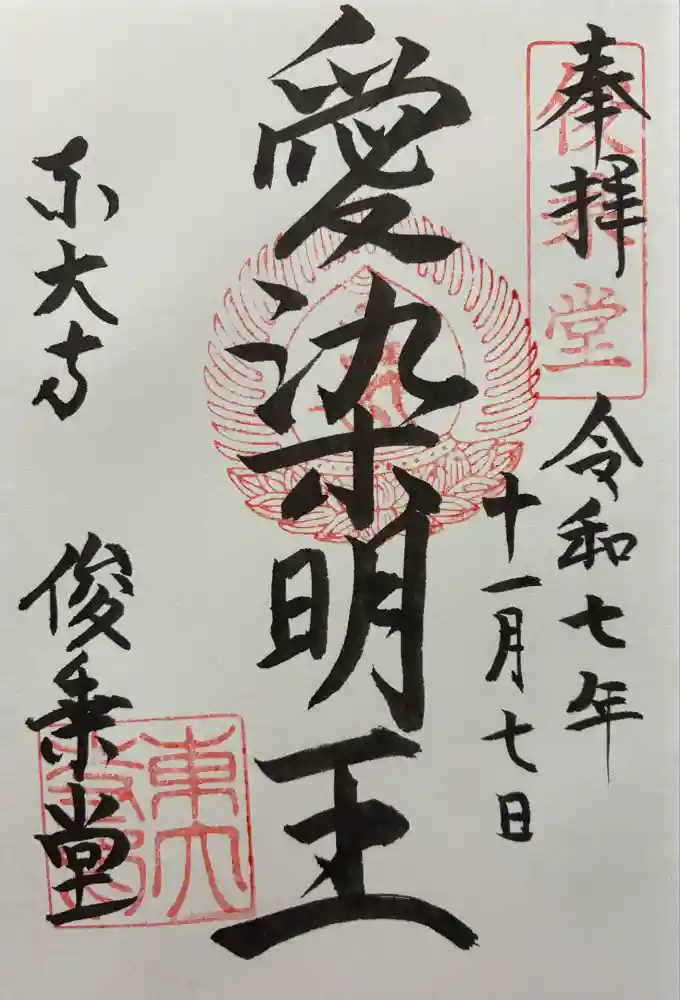 奉拝
俊乗堂
令和七年
十一月七日
愛染明王
东大寺
俊乗堂
東大